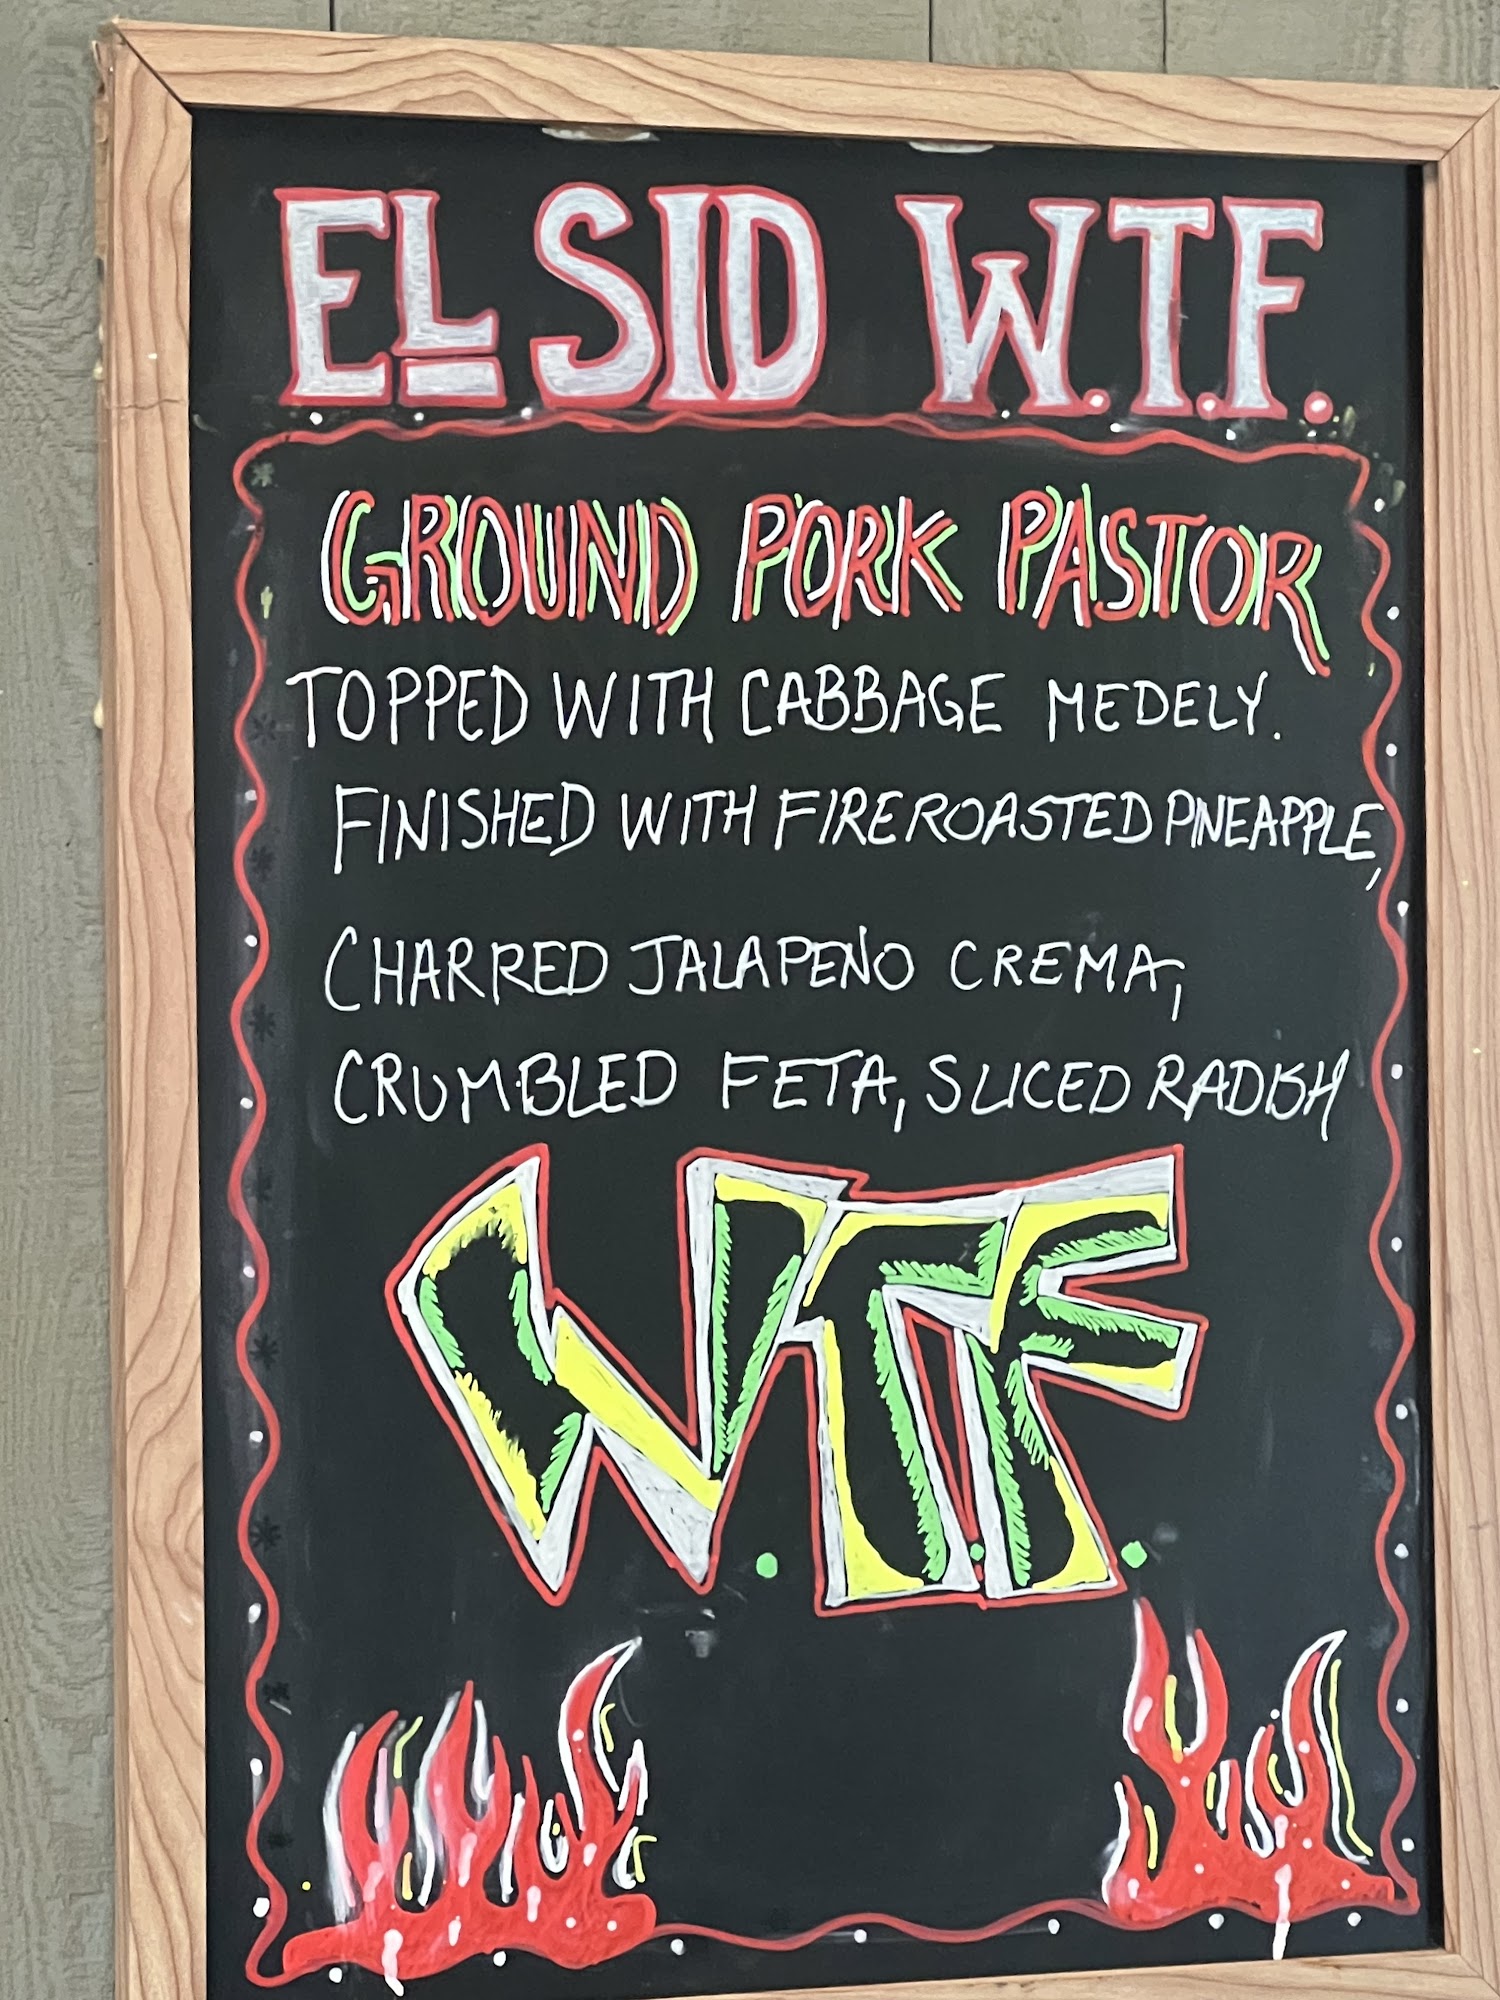 EL SID W.T.F.
GROUND PORK PASTOR
TOPPED WITH CABBAGE MEDELY.
FINISHED WITH FIREROASTED PINEAPPLE,
CHARRED JALAPEÑO CREMA,
CRUMBLED FETA, SLICED RADISH
W.T.F.